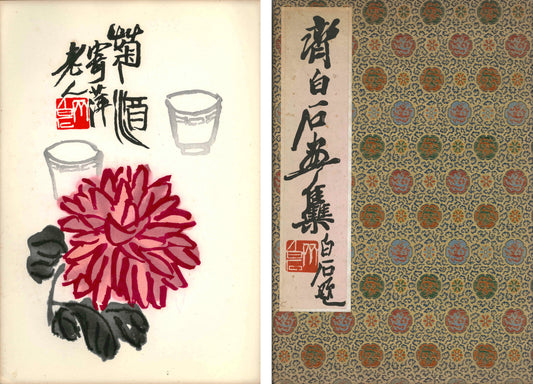 菊酒
寄萍
老人
齊白石畫集
白石題